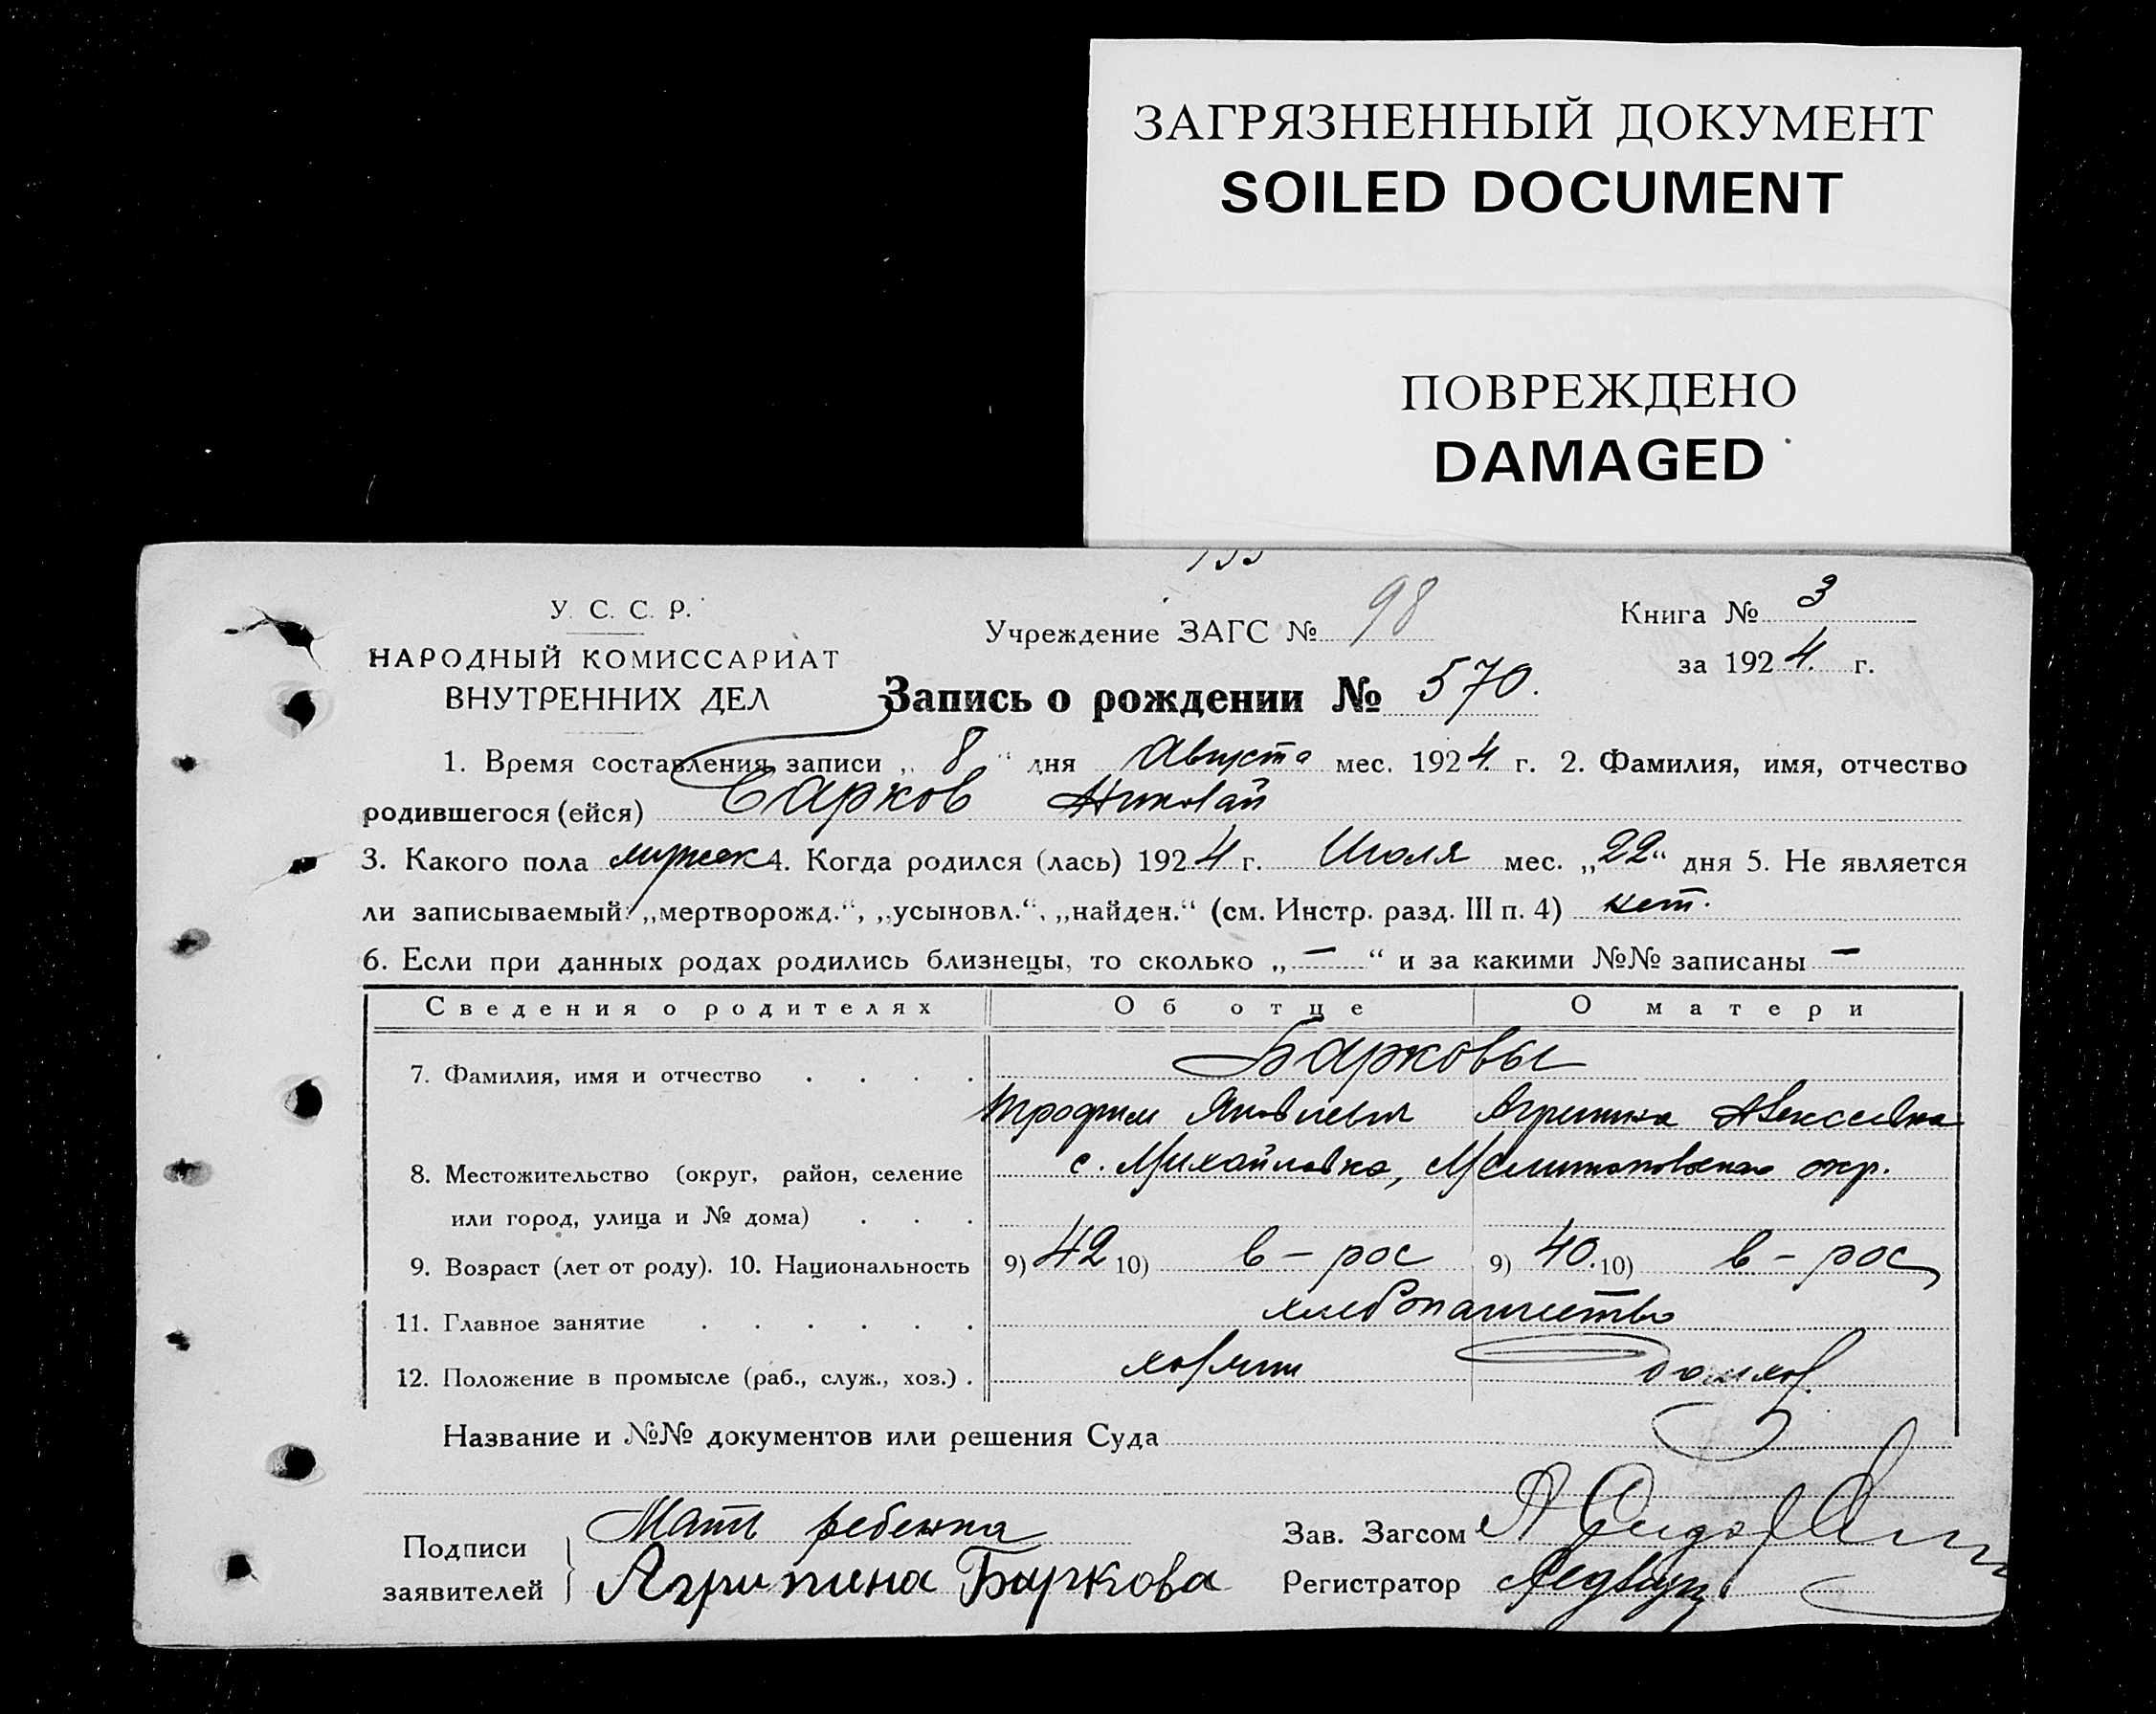 ЗАГРЯЗНЕННЫЙ ДОКУМЕНТ
SOILED DOCUMENT
ПОВРЕЖДЕНО
DAMAGED
У. С. С. Р.
НАРОДНЫЙ КОМИССАРИАТ
ВНУТРЕННИХ ДЕЛ
Учреждение ЗАГС № 98
Книга № 3
за 1924 г.
Запись о рождении № 570.
1. Время составления записи „ 8 “ дня Августа мес. 1924 г. 2. Фамилия, имя, отчество
родившегося (ейся) Барков Николай
3. Какого пола мужск 4. Когда родился (лась) 1924 г. Июля мес. „22“ дня 5. Не является
ли записываемый: „мертворожд.“, „усыновл.“, „найден.“ (см. Инстр. разд. III п. 4) нет.
6. Если при данных родах родились близнецы, то сколько „—“ и за какими №№ записаны —
Сведения о родителях Об отце О матери
7. Фамилия, имя и отчество . . . . Барковы
Трофим Яковлевич Агрипина Алексеевна
8. Местожительство (округ, район, селение с. Михайловка, Мелитопольского окр.
или город, улица и № дома) . . .
9. Возраст (лет от роду). 10. Национальность 9) 42 10) в – рос 9) 40. 10) в – рос
11. Главное занятие . . . . . . хлебопашество
12. Положение в промысле (раб., служ., хоз.) . домхоз.
Название и №№ документов или решения Суда
Подписи заявителей Мать ребенка
Агрипина Баркова
Зав. Загсом
Регистратор